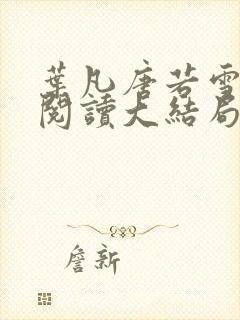 葉凡唐若雪
閱讀大結局
詹新